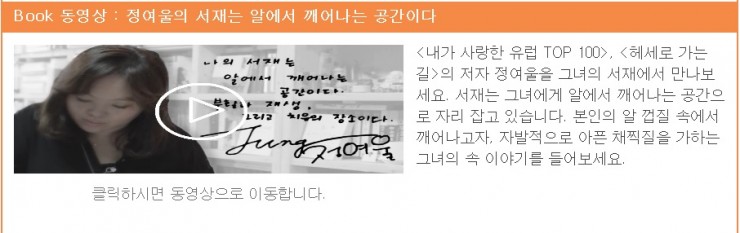 Book 동영상 : 정여울의 서재는 알에서 깨어나는 공간이다
나의 서재는
알에서 깨어나는
공간이다.
부화와 재생,
그리고 치유의 장소이다.
Jung 정여울
<내가 사랑한 유럽 TOP 100>, <헤세로 가는
길>의 저자 정여울을 그녀의 서재에서 만나보
세요. 서재는 그녀에게 알에서 깨어나는 공간으
로 자리 잡고 있습니다. 본인의 알 껍질 속에서
깨어나고자, 자발적으로 아픈 채찍질을 가하는
그녀의 속 이야기를 들어보세요.
클릭하시면 동영상으로 이동합니다.